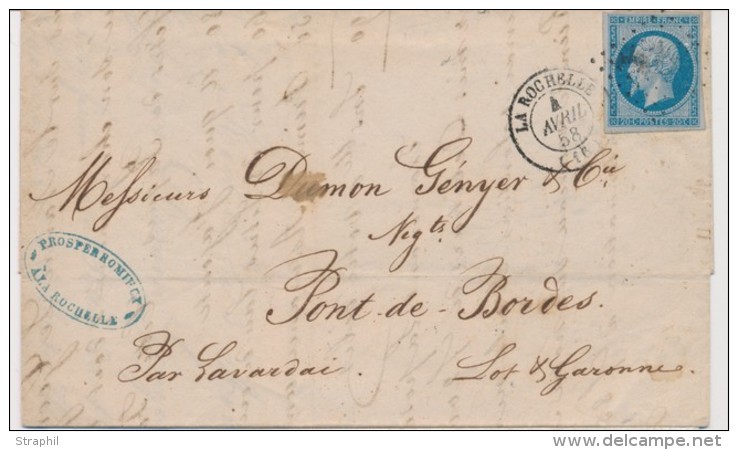 EMPIRE FRANC
20 C POSTES 20 C
LA ROCHELLE
4
AVRIL
58
Messieurs Dumon Gényer & Cie
Negts
PROSPER ROMIEUX
A LA ROCHELLE
Pont-de-Bordes.
Par Lavardac
Lot & Garonne
Straphil
www.delcampe.net